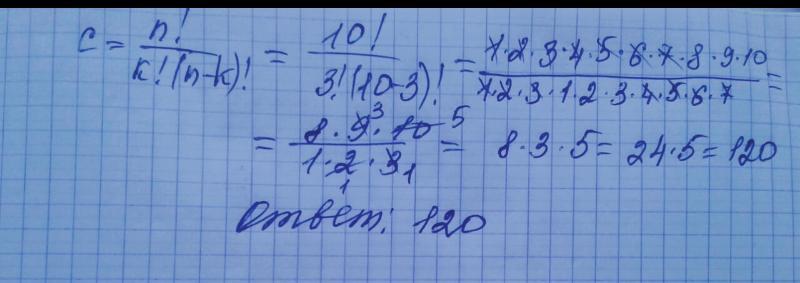 c = n! / k!(n-k)! = 10! / 3!(10-3)! = 1·2·3·4·5·6·7·8·9·10 / 1·2·3·1·2·3·4·5·6·7 =
= 8·9³·10 5 / 1·2·3 1 1 = 8·3·5 = 24·5 = 120
Ответ: 120